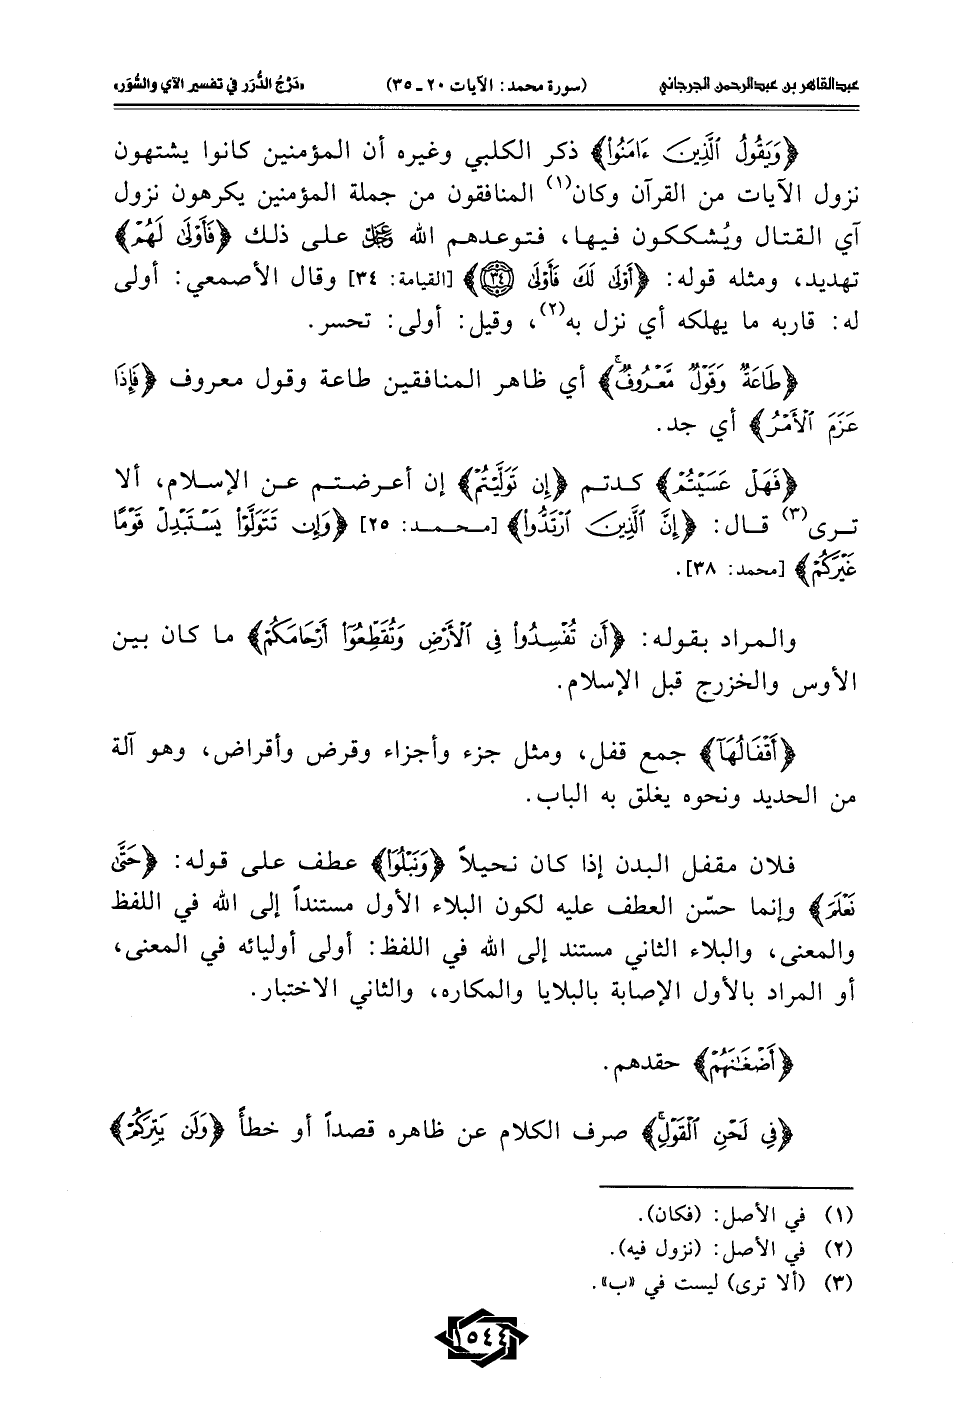 عبدالقاهر بن عبدالرحمن الجرجاني (سورة محمد: الآيات ٢٠ ـ ٣٥) «دَرْجُ الدُّرَر في تفسير الآي والسُّوَر»
﴿وَيَقُولُ ٱلَّذِينَ ءَامَنُوا۟﴾ ذكر الكلبي وغيره أن المؤمنين كانوا يشتهون
نزول الآيات من القرآن وكان(١) المنافقون من جملة المؤمنين يكرهون نزول
آي القتال ويُشككون فيها، فتوعدهم الله ﷻ على ذلك ﴿فَأَوْلَىٰ لَهُمْ﴾
تهديد، ومثله قوله: ﴿أَوْلَىٰ لَكَ فَأَوْلَىٰ ٣٤﴾ [القيامة: ٣٤] وقال الأصمعي: أولى
له: قاربه ما يهلكه أي نزل به(٢)، وقيل: أولى: تحسر.
﴿طَاعَةٌ وَقَوْلٌ مَّعْرُوفٌ ۚ﴾ أي ظاهر المنافقين طاعة وقول معروف ﴿فَإِذَا
عَزَمَ ٱلْأَمْرُ﴾ أي جد.
﴿فَهَلْ عَسَيْتُمْ﴾ كدتم ﴿إِن تَوَلَّيْتُمْ﴾ إن أعرضتم عن الإسلام، ألا
ترى(٣) قال: ﴿إِنَّ ٱلَّذِينَ ٱرْتَدُّوا۟﴾ [محمد: ٢٥] ﴿وَإِن تَتَوَلَّوْا۟ يَسْتَبْدِلْ قَوْمًا
غَيْرَكُمْ﴾ [محمد: ٣٨].
والمراد بقوله: ﴿أَن تُفْسِدُوا۟ فِى ٱلْأَرْضِ وَتُقَطِّعُوٓا۟ أَرْحَامَكُمْ﴾ ما كان بين
الأوس والخزرج قبل الإسلام.
﴿أَقْفَالُهَآ﴾ جمع قفل، ومثل جزء وأجزاء وقرض وأقراض، وهو آلة
من الحديد ونحوه يغلق به الباب.
فلان مقفل البدن إذا كان نحيلاً ﴿وَنَبْلُوَا۟﴾ عطف على قوله: ﴿حَتَّىٰ
نَعْلَمَ﴾ وإنما حسّن العطف عليه لكون البلاء الأول مستنداً إلى الله في اللفظ
والمعنى، والبلاء الثاني مستند إلى الله في اللفظ: أولى أوليائه في المعنى،
أو المراد بالأول الإصابة بالبلايا والمكاره، والثاني الاختبار.
﴿أَضْغَٰنَهُمْ﴾ حقدهم.
﴿فِى لَحْنِ ٱلْقَوْلِ ۚ﴾ صرف الكلام عن ظاهره قصداً أو خطأ ﴿وَلَن يَتِرَكُمْ﴾
(١) في الأصل: (فكان).
(٢) في الأصل: (نزول فيه).
(٣) (ألا ترى) ليست في «ب».
١٥٤٤